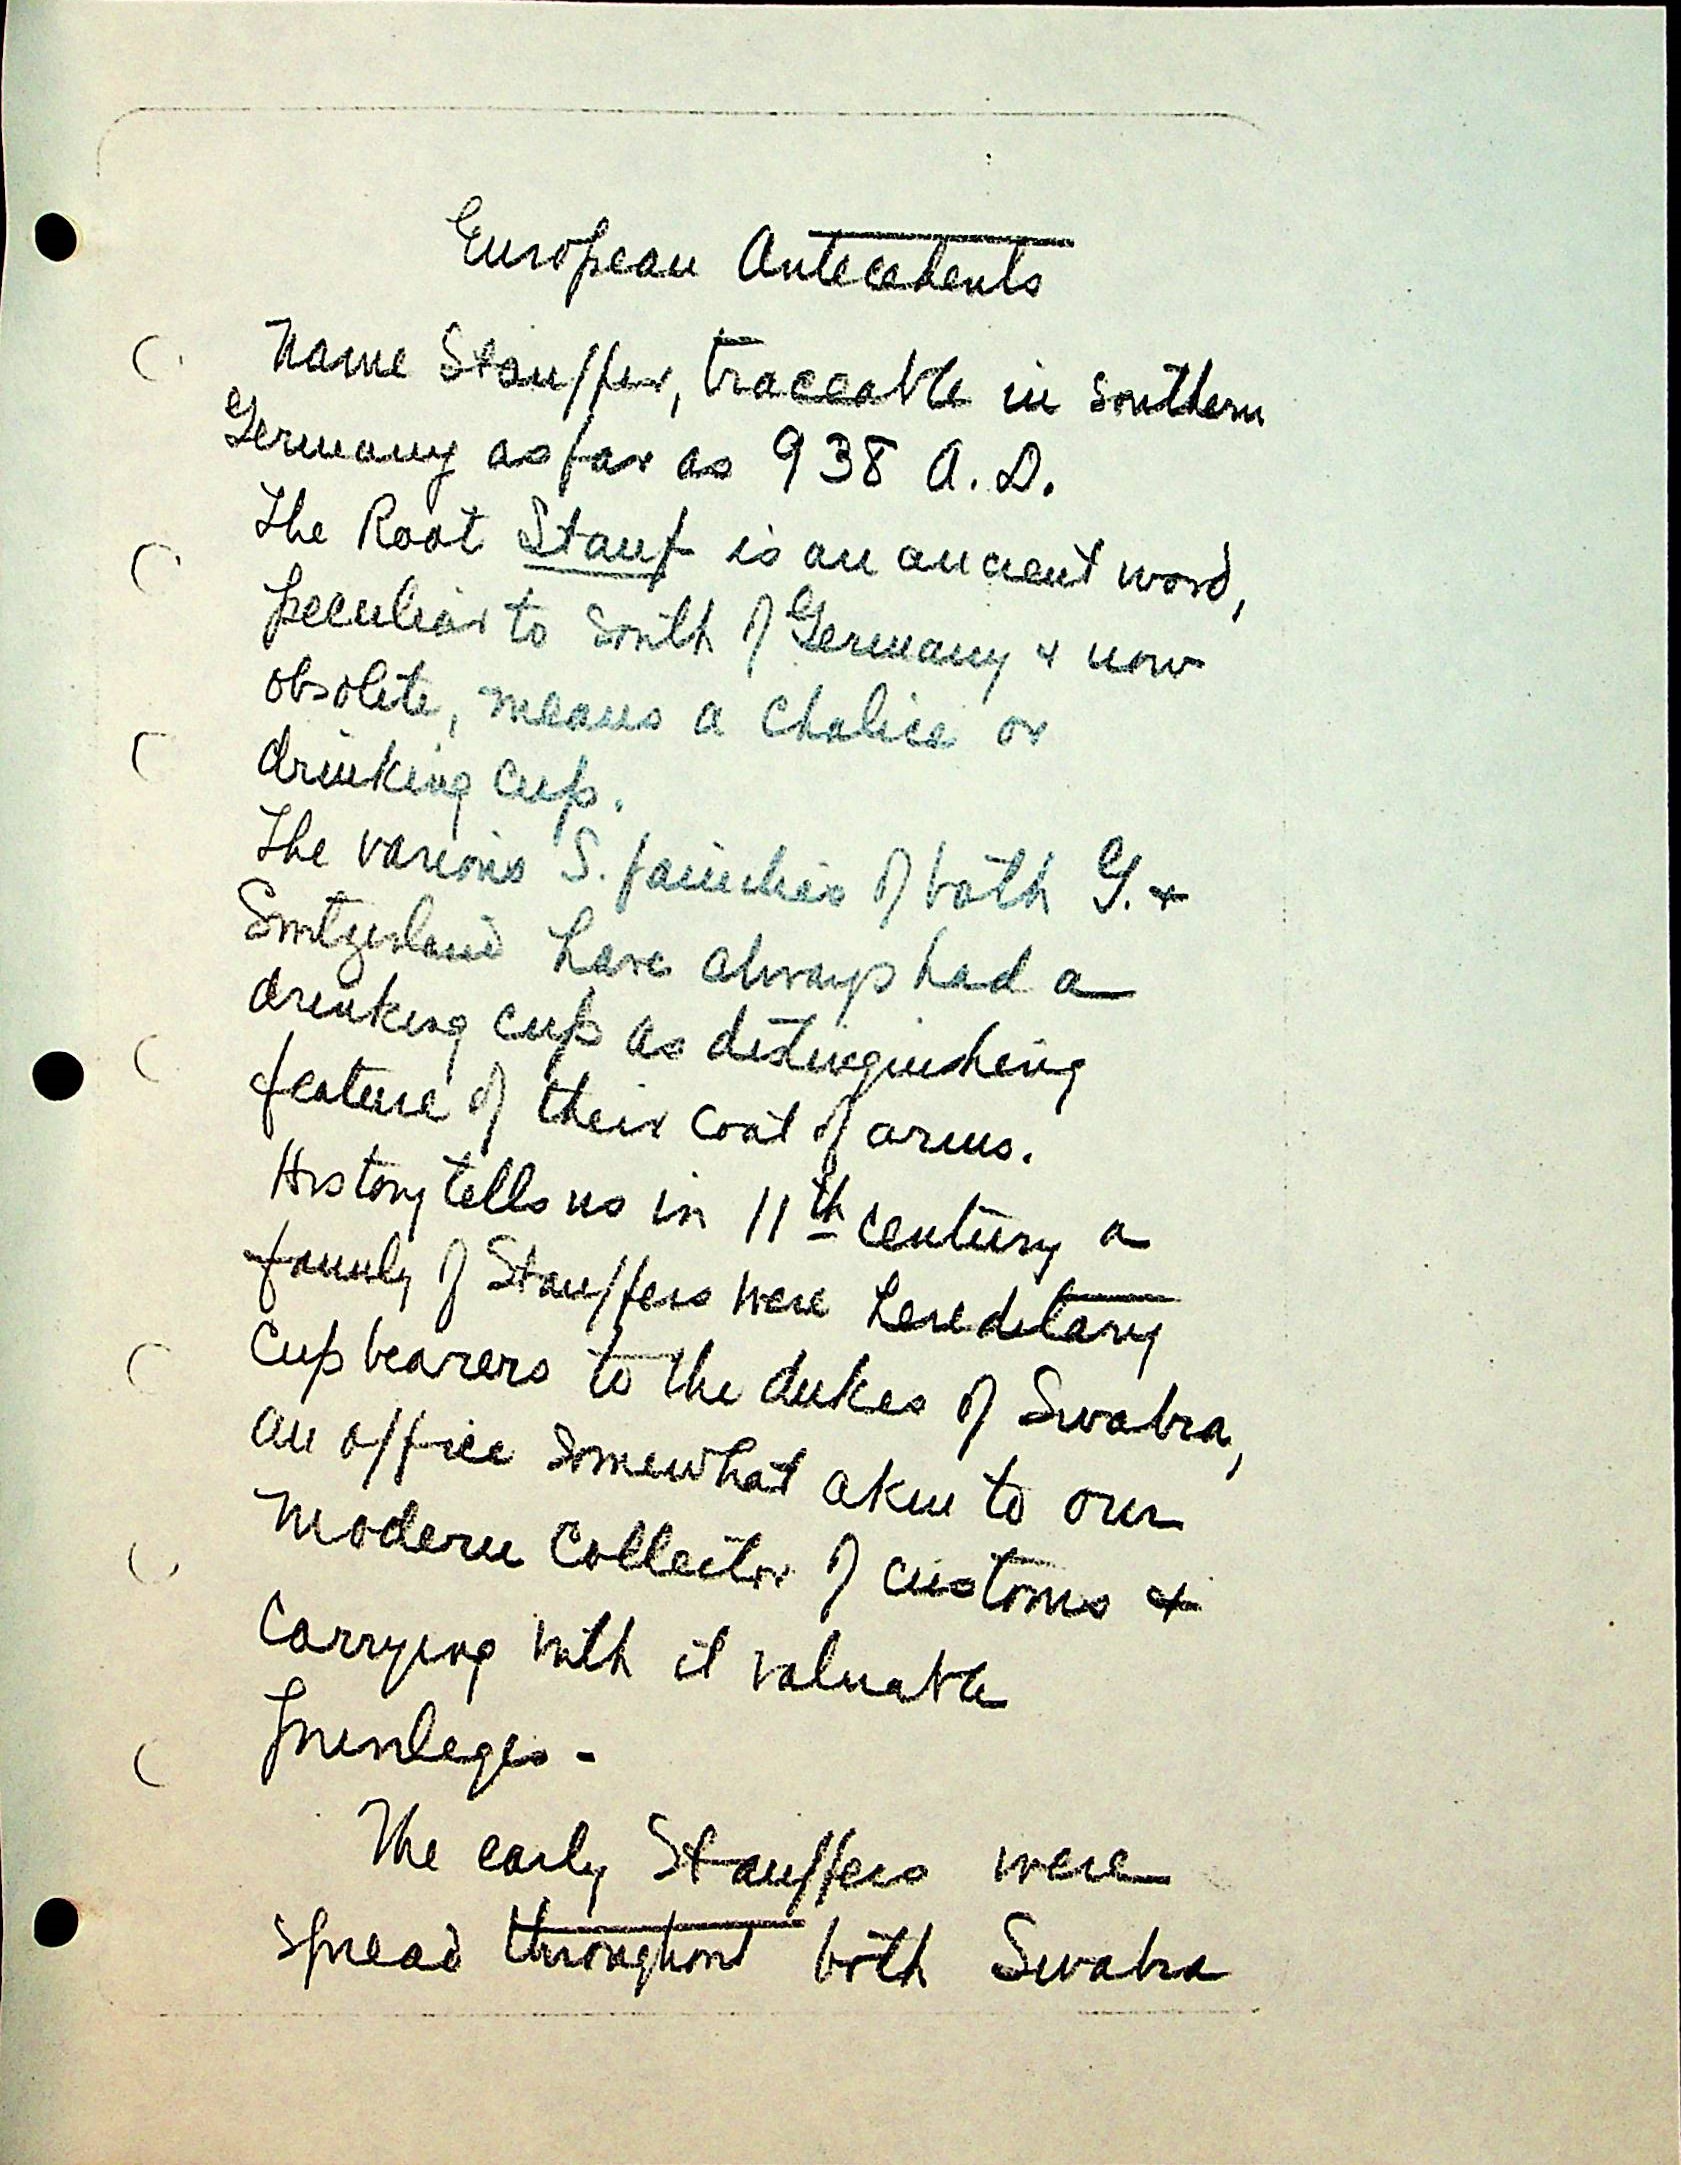 European Antecedents
Name Stauffer, traceable in southern
Germany as far as 938 A.D.
The Root Stauf is an ancient word,
peculiar to south of Germany & now
obsolete, means a chalice or
drinking cup.
The various S. families of both G. &
Switzerland have always had a
drinking cup as distinguishing
feature of their coat of arms.
History tells us in 11th century a
family of Stauffers were hereditary
Cup bearers to the dukes of Swabia,
an office somewhat akin to our
modern Collector of customs &
carrying with it valuable
privileges -
The early Stauffers were
spread throughout both Swabia